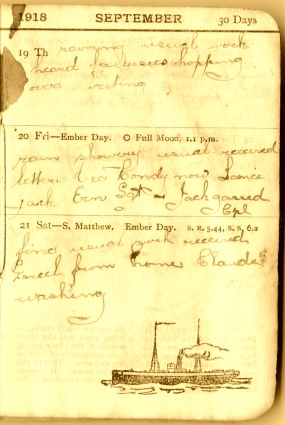 1918 SEPTEMBER 30 Days
19 Th raining usual work
heard
over writing
20 Fri—Ember Day. O Full Moon, 1.1 p.m.
rain showery usual received
letters now Lance
Jack Ern Sgt - Jack
Cpl
21 Sat—S. Matthew. Ember Day. S. R. 5.44, S. S, 6.2
fine usual work received
parcel from home Claude
washing